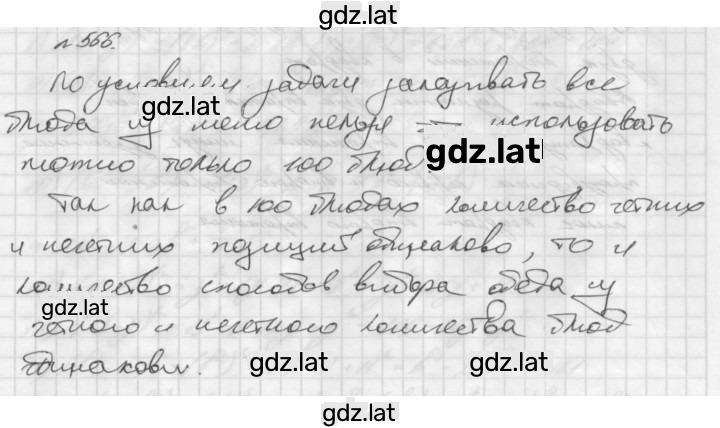 gdz.lat
n 566.
По условиям задачи заказывать все
gdz.lat
блюда из меню нельзя — использовать
gdz.lat
можно только 100 блюд.
Так как в 100 блюдах количество четных
и нечетных позиций одинаково, то и
количество способов выбора обеда из
gdz.lat
четного и нечетного количества блюд
одинаковы.
gdz.lat gdz.lat
gdz.lat